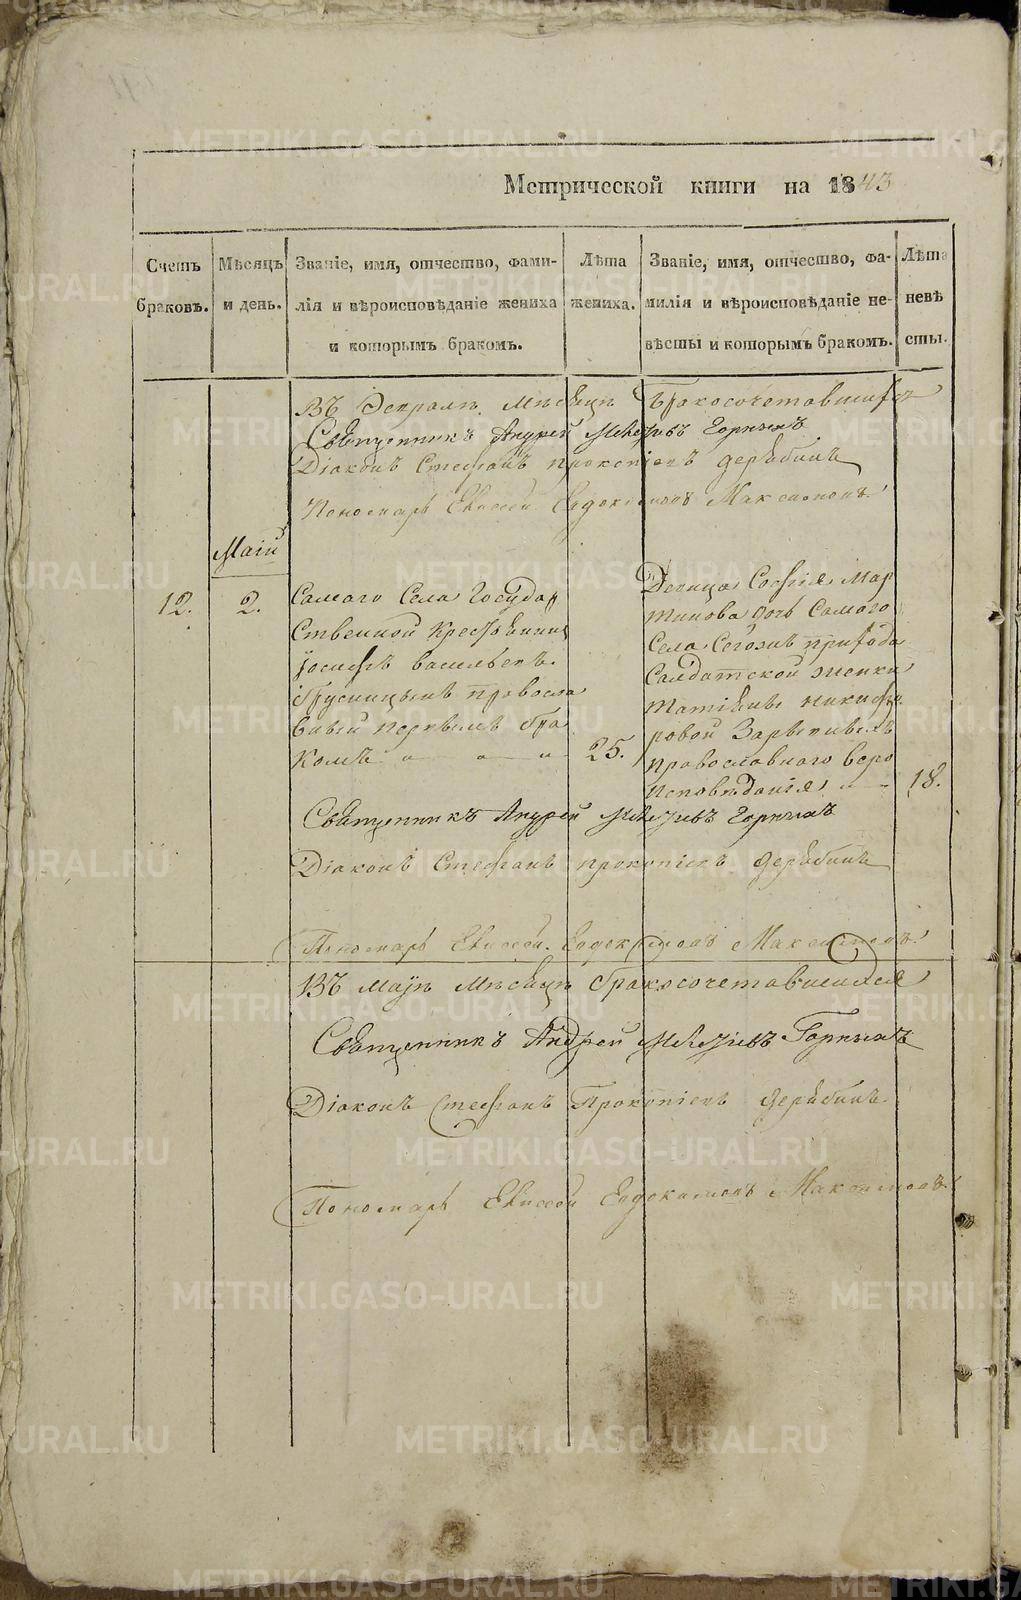 Метрической книги на 1843
Счетъ браковъ.
Мѣсяцъ и день.
Званіе, имя, отчество, фами-
лія и вѣроисповѣданіе жениха
и которымъ бракомъ.
Лѣта жениха.
Званіе, имя, отчество, фа-
милія и вѣроисповѣданіе не-
вѣсты и которымъ бракомъ.
Лѣта невѣ
сты.
Въ Февралѣ мѣсяцѣ бракосочетавшихся
Священникъ Андрей Горныхъ
Діаконъ Стефанъ Прокопіевъ Дерябинъ
Пономарь Елисей Евдокимовъ Максимовъ
Маій
12.
2.
Самаго Села Государ
ственной Крестьянинъ
Іосифъ Васильевъ
Брусницынъ православ
ный первымъ бра
комъ
25.
Девица Софія Мар
тинова дочь Самаго
Села Сего же прихода
Салдатской женки
Татіяны Никифо
ровой
православнаго веро
исповѣданія
18.
Священникъ Андрей Горныхъ
Діаконъ Стефанъ Прокопіевъ Дерябинъ
Пономарь Елисей Евдокимовъ Максимовъ
Въ Маіѣ мѣсяцѣ бракосочетавшихся
Священникъ Андрей Горныхъ
Діаконъ Стефанъ Прокопіевъ Дерябинъ
Пономарь Елисей Евдокимовъ Максимовъ
METRIKI.GASO-URAL.RU